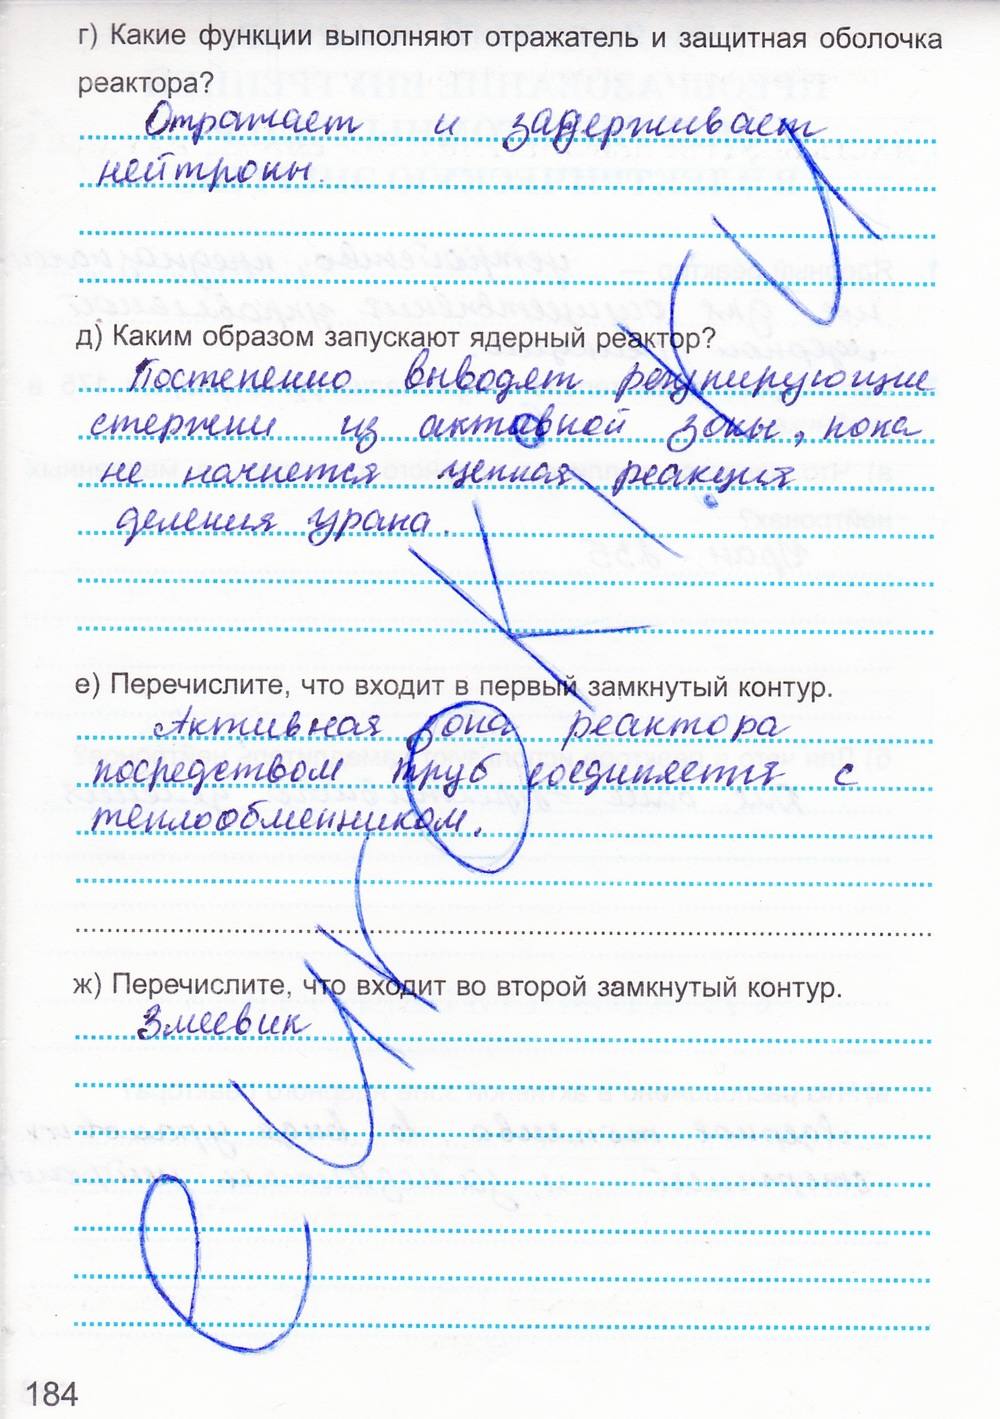 г) Какие функции выполняют отражатель и защитная оболочка
реактора?
Отражает и задерживает
нейтроны.
д) Каким образом запускают ядерный реактор?
Постепенно выводят регулирующие
стержни из активной зоны, пока
не начнется цепная реакция
деления урана.
е) Перечислите, что входит в первый замкнутый контур.
Активная зона реактора
посредством труб соединяется с
теплообменником.
ж) Перечислите, что входит во второй замкнутый контур.
Змеевик
184